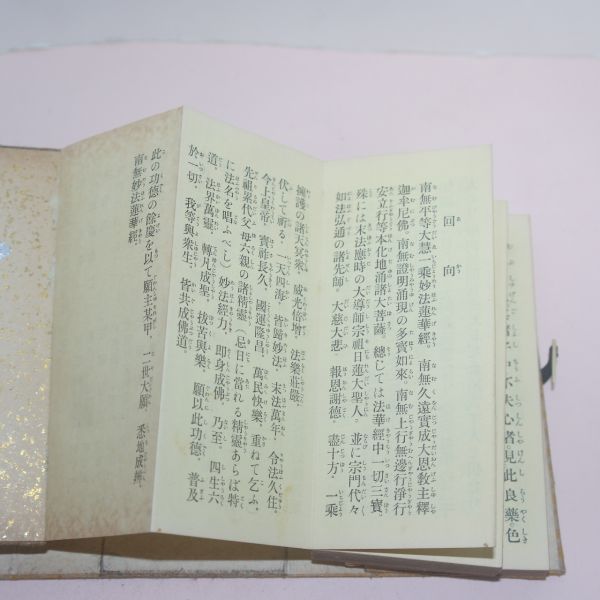 回向
南無平等大慧一乘妙法蓮華經。南無久遠實成大恩敎主釋
迦牟尼佛。南無證明涌現の多寶如來。南無上行無邊行淨行
安立行等本化地涌諸大菩薩。總じては法華經中一切三寶。
殊には末法應時の大導師宗祖日蓮大聖人。並に宗門代々
如法弘通の諸先師。大慈大悲。報恩謝德。盡十方。一乘
擁護の諸天冥衆。威光倍增。法樂莊嚴。
伏して祈る。一天四海。皆歸妙法。末法萬年。令法久住。
今上皇帝。寶祚長久。國運隆昌。萬民快樂。重ねて乞ふ。
先祖累代父母六親の諸精靈(忌日に當れる精靈あらば特
に法名を唱ふべし)妙法經力。即身成佛。乃至。四生六
道。法界萬靈。轉凡成聖。拔苦與樂。願以此功德。普及
於一切。我等與衆生。皆共成佛道。
此の功德の餘慶を以て願主某甲。二世大願。悉地成辨。
南無妙法蓮華經。
不失心者見此良藥。色